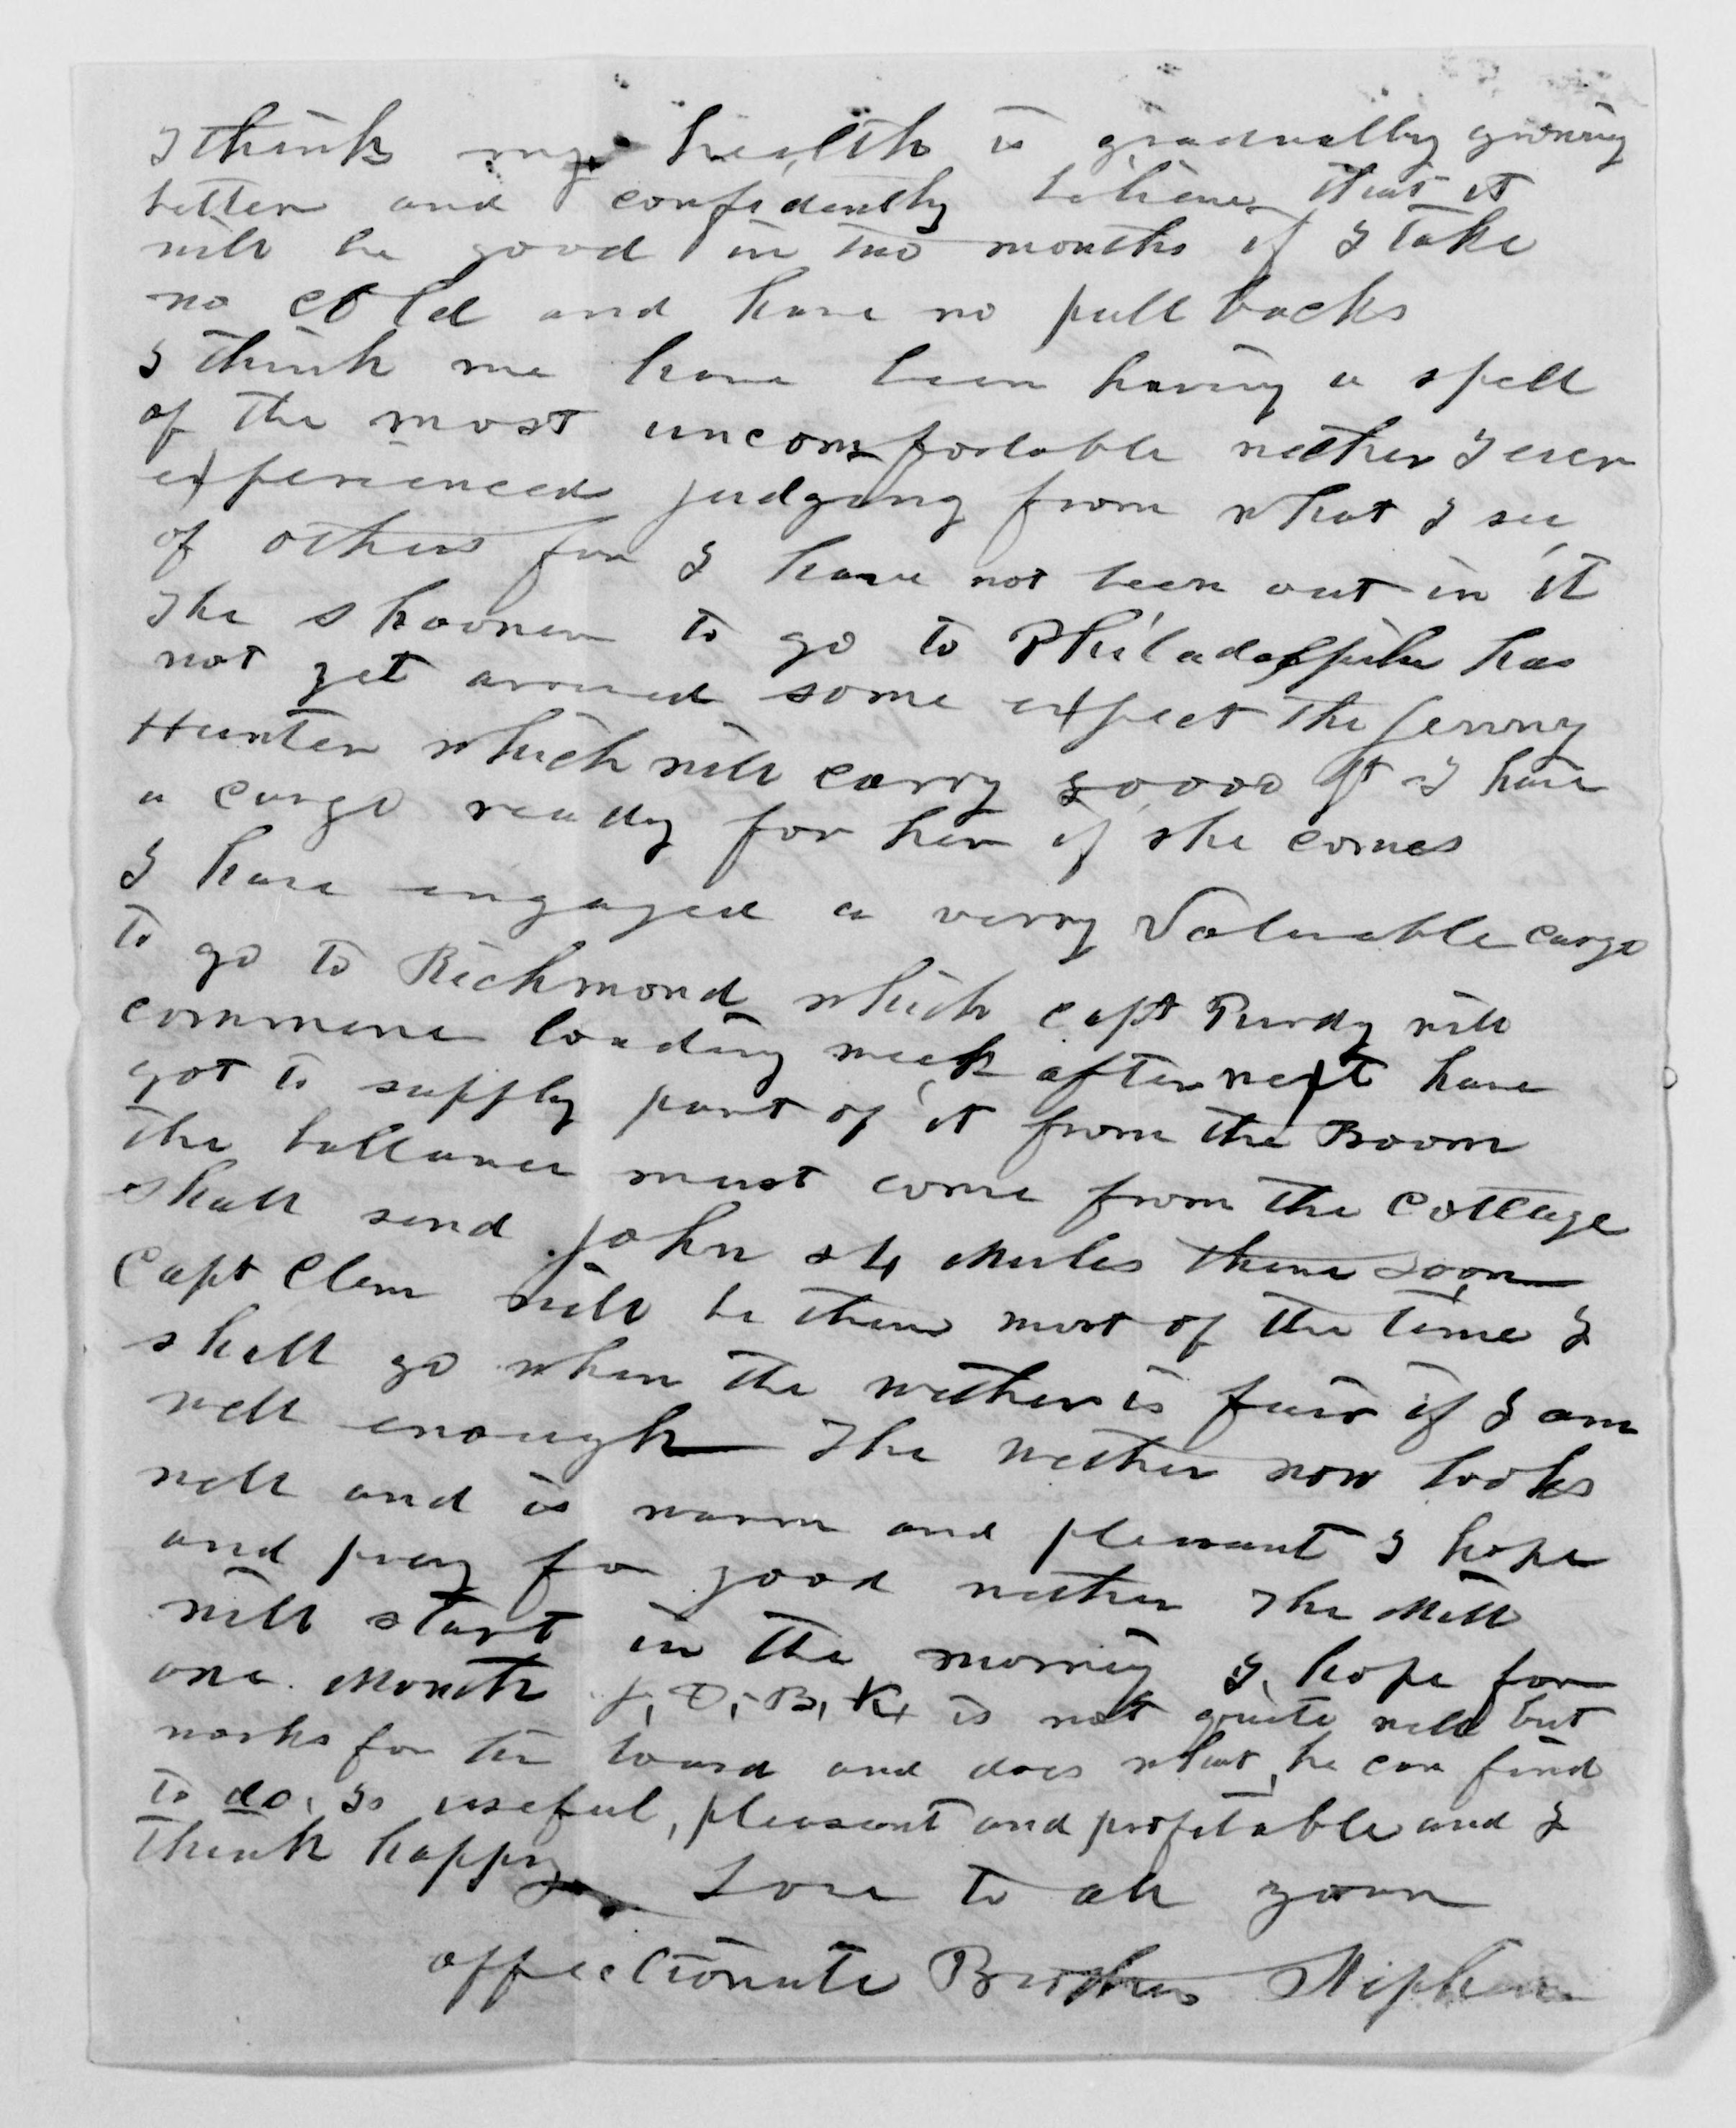 I think my health is gradually growing
better and confidently believe that it
will be good in two months if I take
no cold and have no pull backs
I think we have been having a spell
of the most uncomfortable wether I ever
experienced judgeing from what I see
of others for I have not been out in it
The shooner to go to Philadelphia has
not yet arrived some expect the Jenny
Hunter which will carry 50000 ft I have
a cargo ready for her if she comes
I have engaged a verry Valuable cargo
to go to Richmond which Capt Purdy will
commence loading week after next have
got to supply part of it from the Boom
the ballance must come from the Cottage
shall send John & 4 Mules there soon
Capt Clem will be there most of the time I
shall go when the wether is fair if I am
well enough The wether now looks
well and is warm and pleasant I hope
and pray for good wether The Mill
will start in the morning I hope for
one Month J, O, B, K, is not quite well but
works for his board and does what he can find
to do, Is useful, pleasant and profitable and I
think happy Love to all your
affectionate Brother Stephen